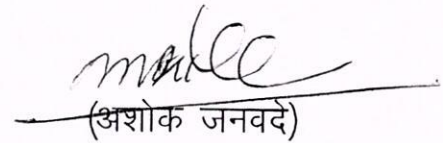 (अशोक जनवदे)